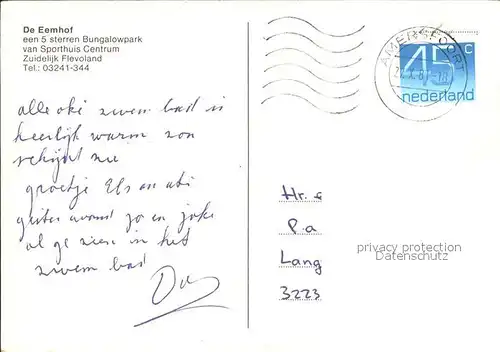 De Eemhof
een 5 sterren Bungalowpark
van Sporthuis Centrum
Zuidelijk Flevoland
Tel.: 03241-344
alle oki zwem bad is
heerlijk warm zon
schijnt
groetje Els en
avond jo en joke
al ge zien in het
zwem bad
AMERSFOORT
45 c
nederland
Hr. &
P.a
Lang
3223
privacy protection
Datenschutz